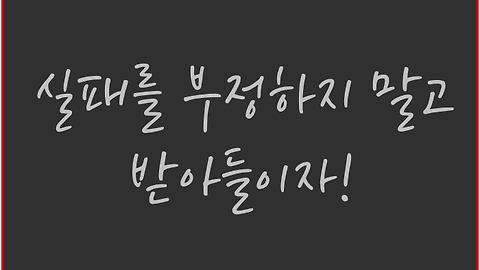 실패를 부정하지 말고
받아들이자!